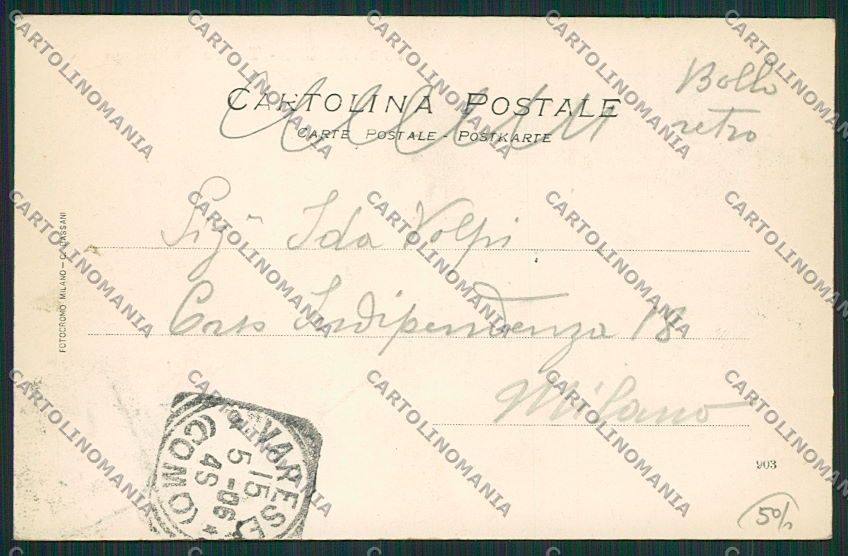 CARTOLINA POSTALE
CARTE POSTALE - POSTKARTE
Bollo
retro
Sigª Ida Volpi
Corso Indipendenza 18
Milano
FOTOCROMO MILANO
VARESE
(COMO)
15
5-06
4S
903
CARTOLINOMANIA